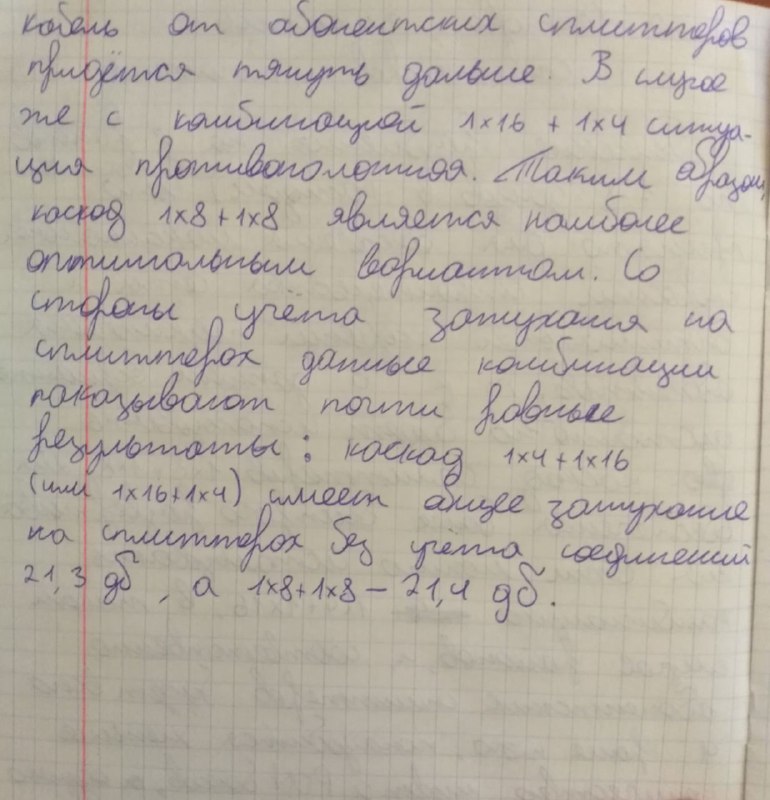 кабель от абонентских сплиттеров
придётся тянуть дальше. В случае
же с комбинацией 1х16 + 1х4 ситуа-
ция противоположная. Таким образом,
каскад 1х8+1х8 является наиболее
оптимальным вариантом. Со
стороны учёта затухания на
сплиттерах данные комбинации
показывают почти равные
результаты: каскад 1х4+1х16
(или 1х16+1х4) имеет общее затухание
на сплиттерах без учёта соединений
21,3 дб, а 1х8+1х8 – 21,4 дб.